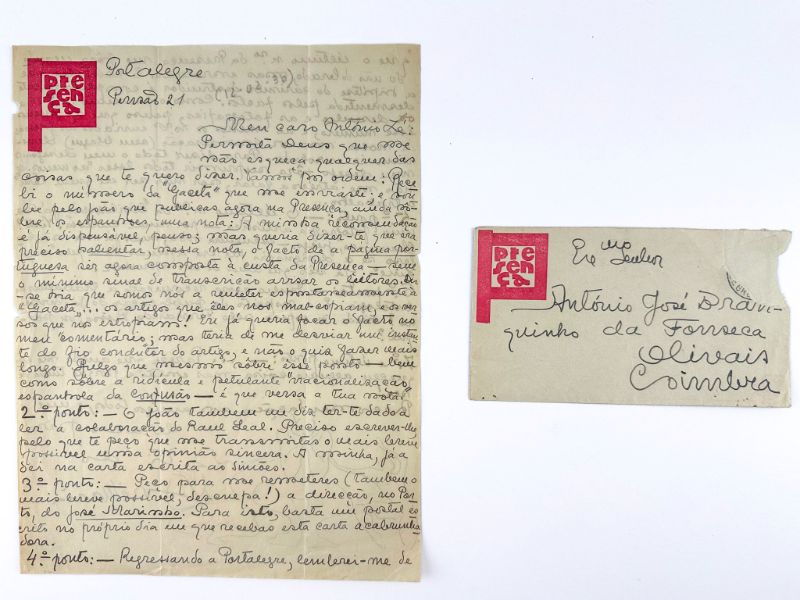 pre
sen
ça
Portalegre
Pensão 21
(12-03-30)
Meu caro António Zé:
Permita Deus que me
não esqueça qualquer das
coisas que te quero dizer. Vamos por ordem: Rece-
bi o número da "Gaceta" que me enviaste; e sou-
be pelo João que publicas agora na Presença, ainda sô-
bre os espanhoes, uma nota: A minha recomendação
é já dispensável, penso; mas queria dizer-te que era
preciso salientar, nessa nota, o facto de a página por-
tuguesa ser agora composta à custa da Presença — sem
o mínimo sinal de transcrição avisar os leitores. Dir-
se-ia que somos nós a remeter espontaneamente à
"Gaceta"... os artigos que êles nos copiam, e os nos-
sos que nos estropiam! Eu já queria focar o facto no
meu comentário; mas teria de me desviar um instan-
te do fio conductor do artigo, e não o quis fazer mais
longo. Julgo que mesmo sôbre êsse ponto — bem
como sôbre a ridícula e petulante "nacionalização"
espanhola da confusão — é que versa a tua nota.
2.º ponto: — O João também me diz ter-te dado a
ler a colaboração do Raul Leal. Preciso escrever-lhe
pelo que te peço que me transmitas o mais breve
possível uma opinião sincera. A minha, já a
dei na carta escrita ao Simões.
3.º ponto: — Peço para me remeteres (também o
mais breve possível, desculpa!) a direcção, no Por-
to, do José Marinho. Para isto, basta um postal es-
crito no próprio dia em que recebas esta carta acabrunha-
dora.
4.º ponto: — Regressando a Portalegre, lembrei-me de
pre
sen
ça
Ex.mo
Senhor
António José Bran-
quinho da Fonseca
Olivais
Coimbra